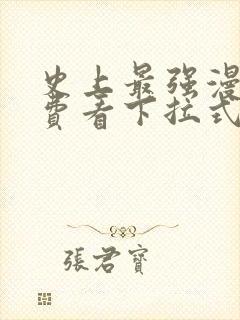 史上最强漫
费看下拉式
張君寶